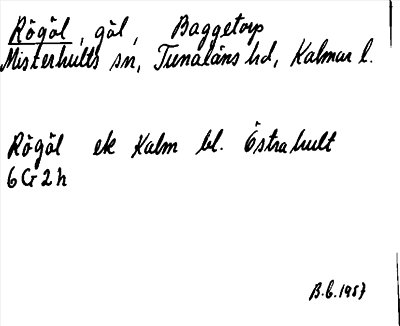 Rögöl, göl, Baggetorp
Misterhults sn, Tunaläns hd, Kalmar l.
Rögöl ek Kalm bl. Östrahult
6G2h
B.C. 1957